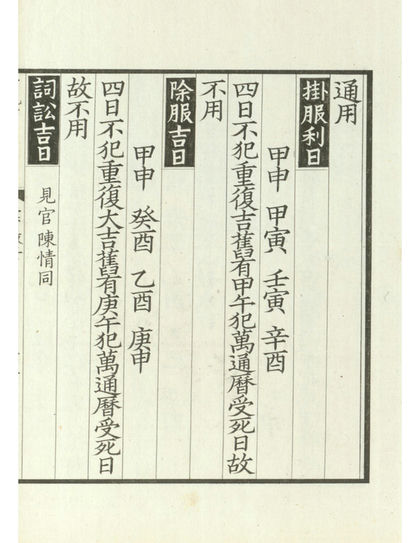 通用
掛服利日
甲申 甲寅 壬寅 辛酉
四日不犯重復吉舊有甲午犯萬通曆受死日故
不用
除服吉日
甲申 癸酉 乙酉 庚申
四日不犯重復大吉舊有庚午犯萬通曆受死日
故不用
詞訟吉日
見官 陳情同